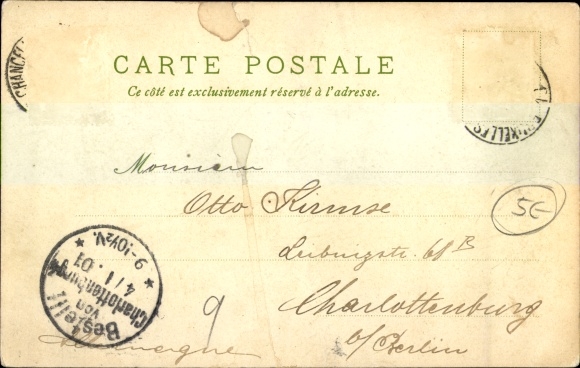 CARTE POSTALE
Ce côté est exclusivement réservé à l'adresse.
Monsieur
Otto Kirmse
Leibnizstr. 68 B
Charlottenburg
b/Berlin
Allemagne
9
5E
Bestellt
von
Charlottenburg
4/1.01
9-10½V.